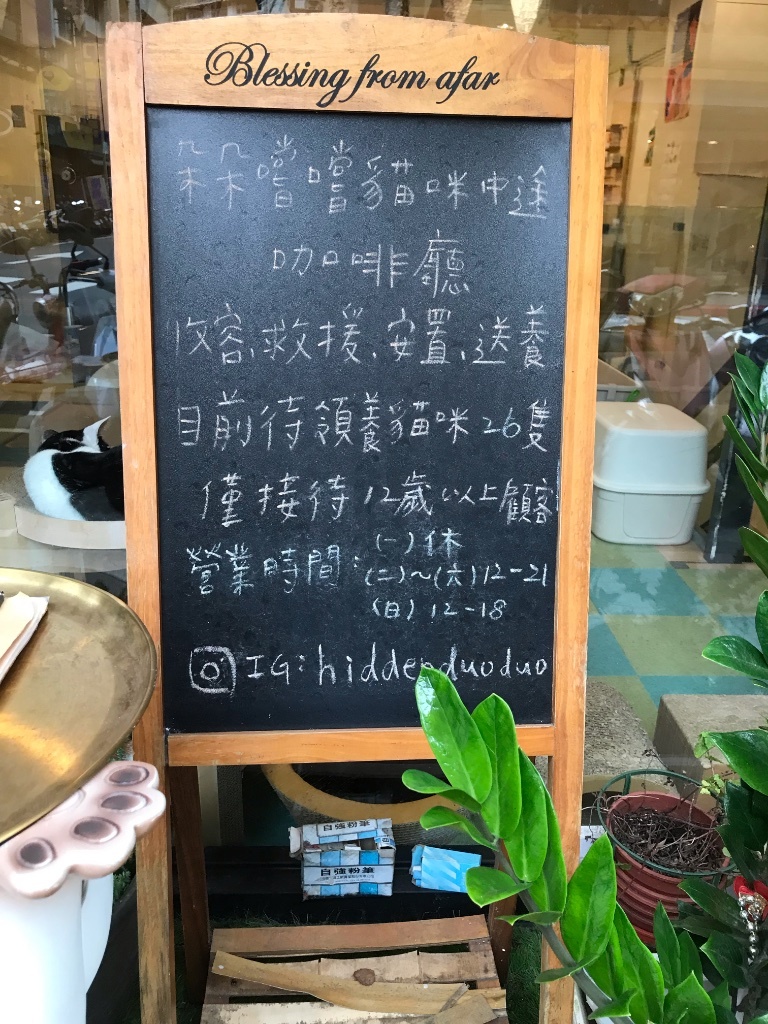 Blessing from afar
朵朵嚐嚐貓咪中途
咖啡廳
收容、救援、安置、送養
目前待領養貓咪26隻
僅接待12歲以上顧客
營業時間：(一)休
(二)～(六)12-21
(日)12-18
IG:hiddenduoduo
自強粉筆
自強粉筆